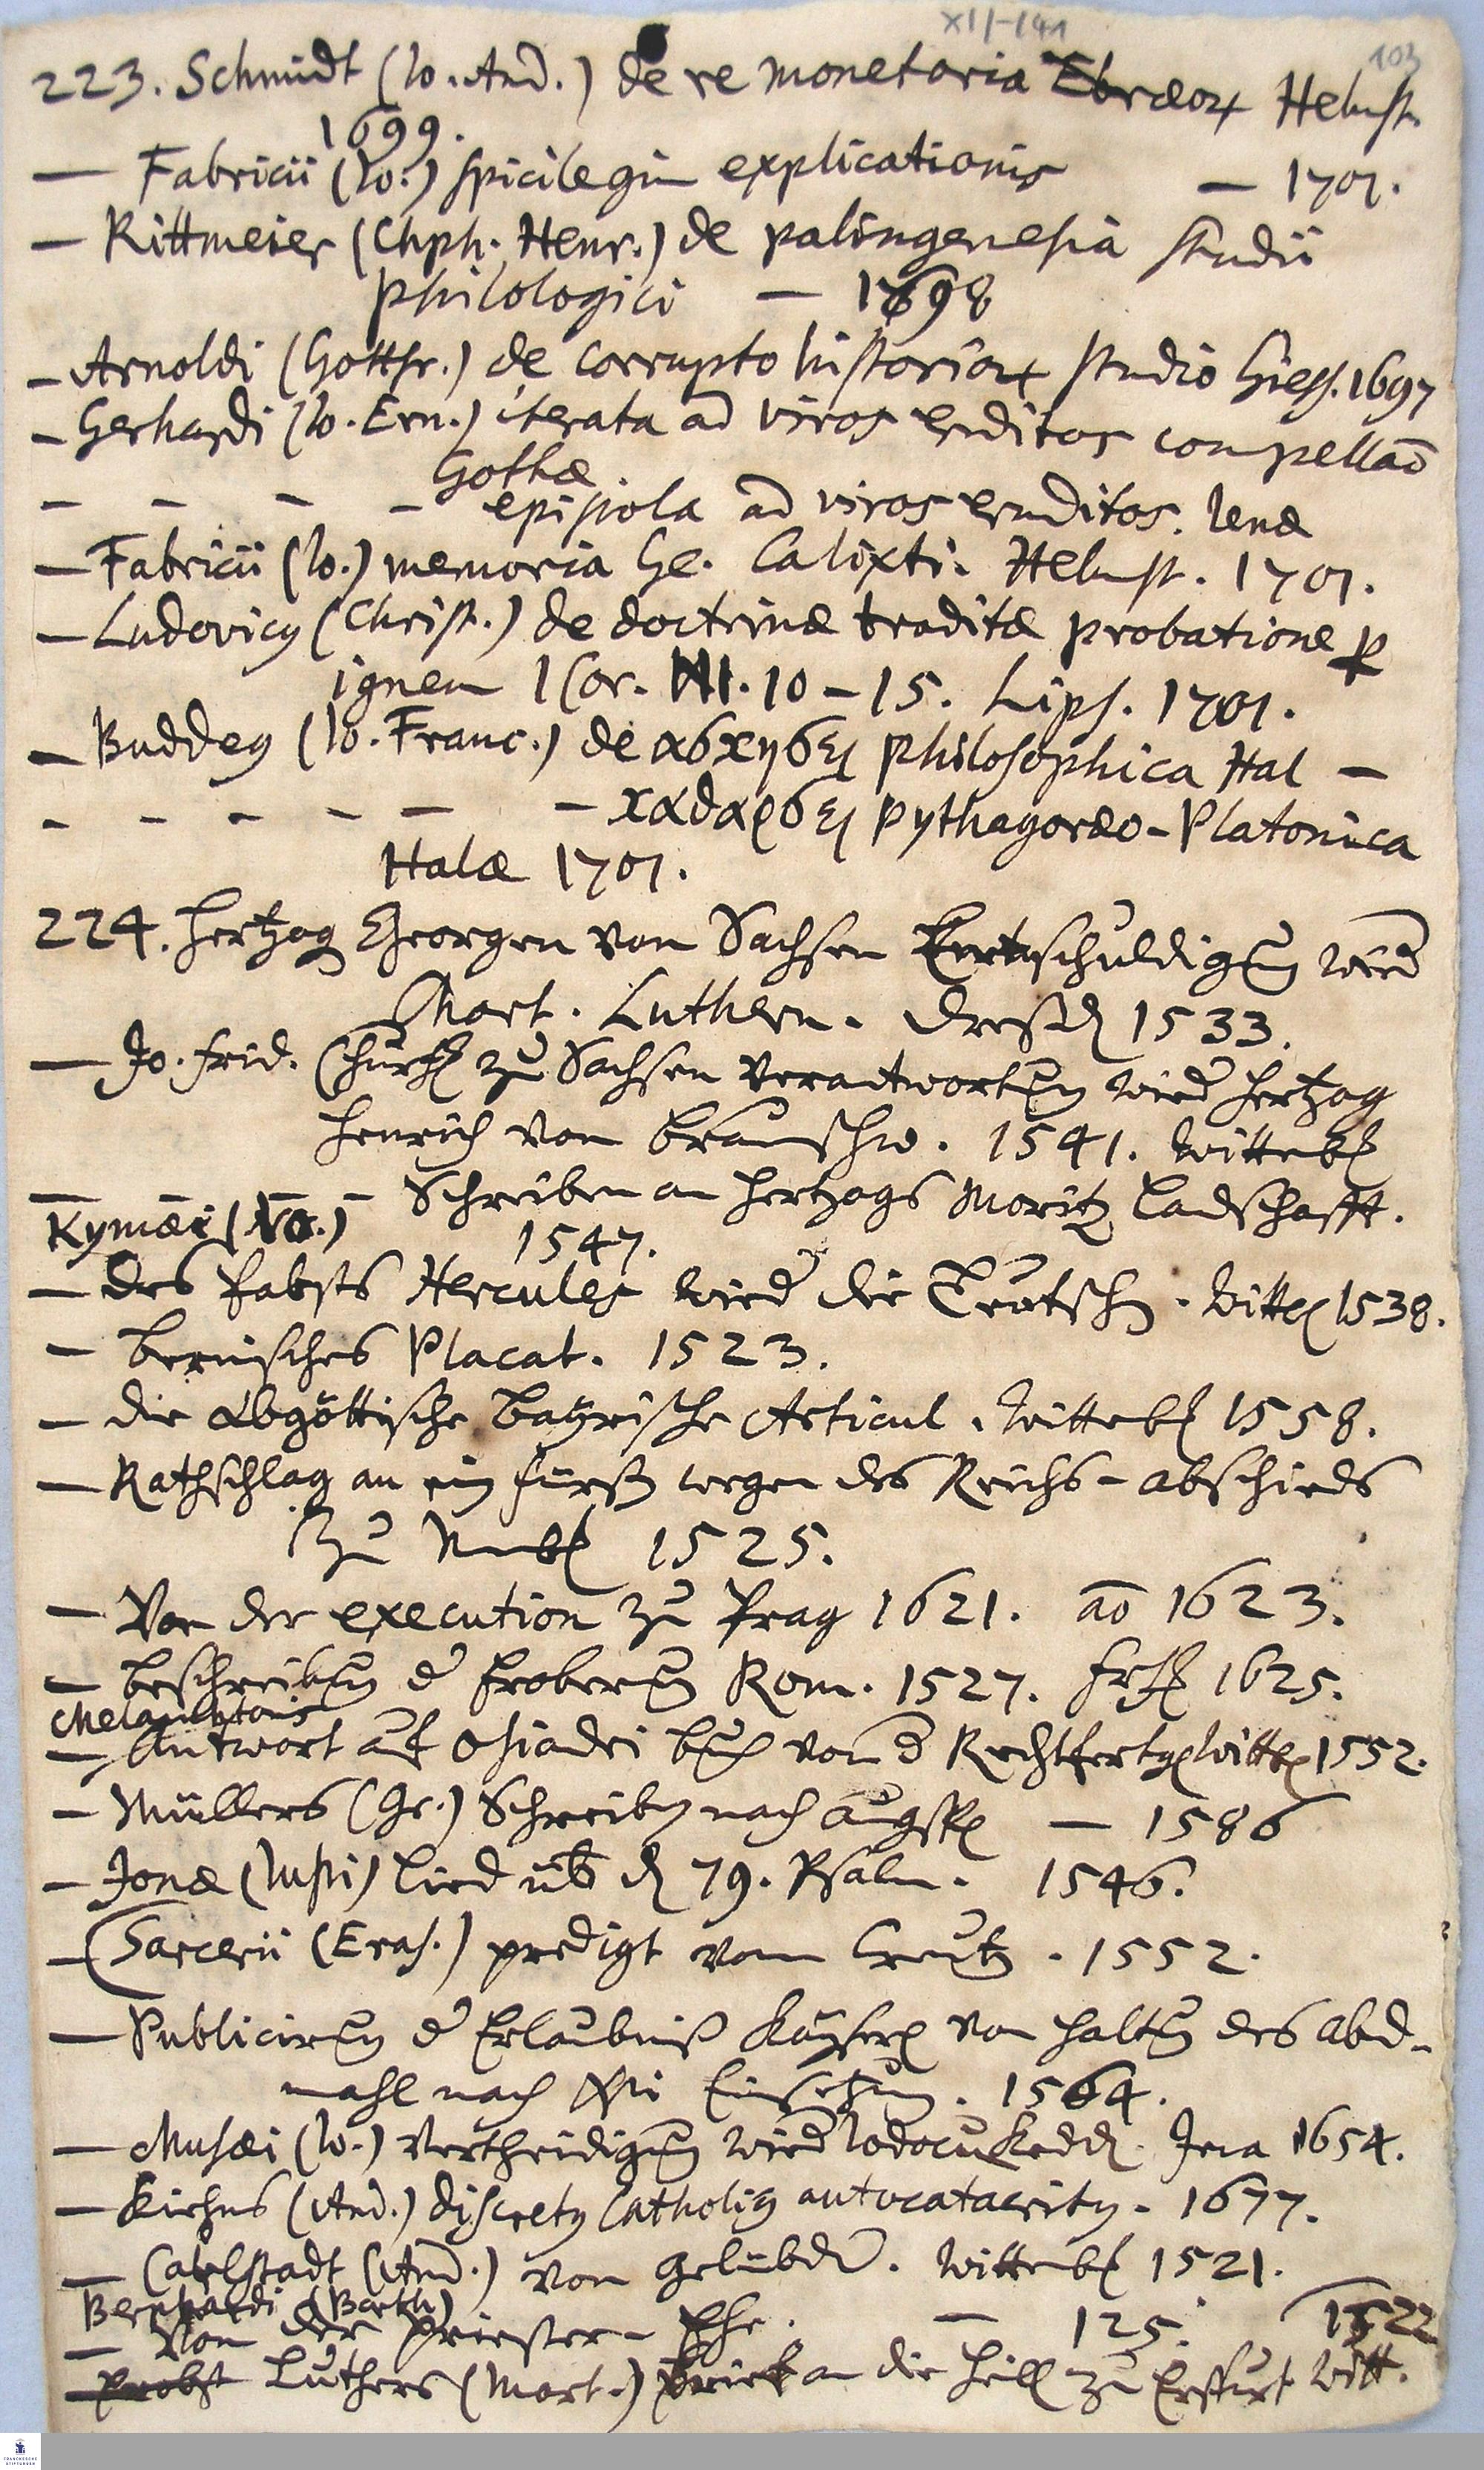 XII-141
103
223. Schmidt (Io. And.) de re monetaria Ebræor. Helmst.
1699.
— Fabricii (Io.) spicilegiu explicationis — 1701.
— Rittmeier (Chph. Henr.) de palingenesia studii
philologici — 1698
— Arnoldi (Gottfr.) de corrupto historiar. studio Giess. 1697
— Gerhardi (Io. Ern.) iterata ad viros eruditos compellao
Gothæ
- - - - epistola ad viros eruditos. Ienæ
— Fabricii (Io.) memoria Ge. Calixti. Helmst. 1701.
— Ludovicy (Christ.) de doctrinæ traditæ probatione p
ignem I Cor. III. 10-15. Lips. 1701.
— Buddeg (Io. Franc.) de ασκησει philosophica Hal —
- - - - - — καθαρσει Pythagoræo-Platonica
Halæ 1701.
224. Hertzog Georgen von Sachsen Entschuldigung wied
Mart. Luthern. Dreßd 1533.
— Jo. Frid. Churf zu Sachsen Verantwortung wied Hertzog
Henrich von Braunschw. 1541. Witteb
— — — Schreiben an Hertzogs Moritz Landschafft.
Kymæi (Jo.) 1547.
— des Pabsts Hercules wied die Teutschen. Witteb 1538.
— Bernisches Placat. 1523.
— die Abgöttische Bayrische Articul. Witteb 1558.
— Rathschlag an ein Fürst wegen des Reichs-abschieds
Zu Nurnb 1525.
— Von der execution zu Prag 1621. ao 1623.
— Beschreibung d Eroberung Rom. 1527. Frf 1625.
Melanchtonis
— Antwort auf Osiandri buch von d Rechtfertg Witteb 1552.
— Müllers (Ge.) Schreiben nach Augsp — 1586
— Jonæ (Iusti) Lied üb d 79. Psalm. 1546.
— Sarcerii (Eras.) predigt vom Creutz. 1552.
— Publicirung d Erlaubniß Kayserl von haltung des Abd-
mahl nach Xsti Einsetzung. 1564.
— Musæi (Io.) Vertheidigung wied Iodocu Kedd. Jena 1654.
— Kirhns (And.) discrety Catholig autocatacrity. 1677.
— Carlstadt (And.) von Gelübden. Witteb 1521.
Bernhardi (Barth)
— Von der Priester-Ehe. — 125. 1522
— Probst Luthers (Mart.) Brief an die zu Erffurt Witt.